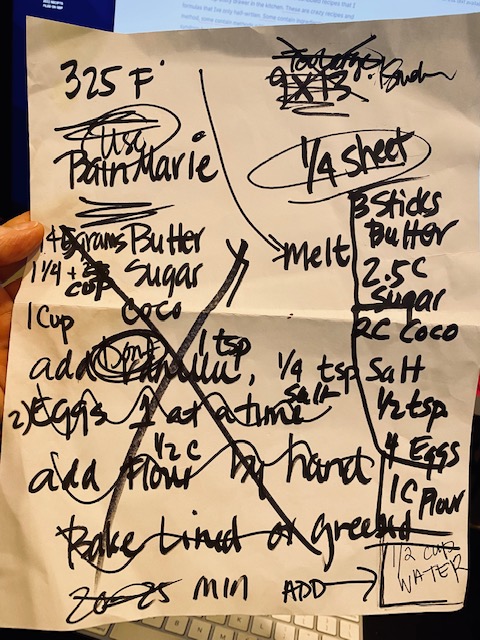 325 F°
9X13
Use
Bain Marie
1/4 sheet
Melt
3 Sticks
Butter
2.5 C
Sugar
2C Coco
Salt
1/2 tsp
4 Eggs
1C Flour
1/2 cup
WATER
grams Butter
1 1/4 + cup Sugar
1 Cup Coco
Dont
add 1 tsp, 1/4 tsp
Salt
2) Eggs 1 at a time
add Flour 1/2 C by hand
Bake Lined or greesed
20-25 MIN
ADD